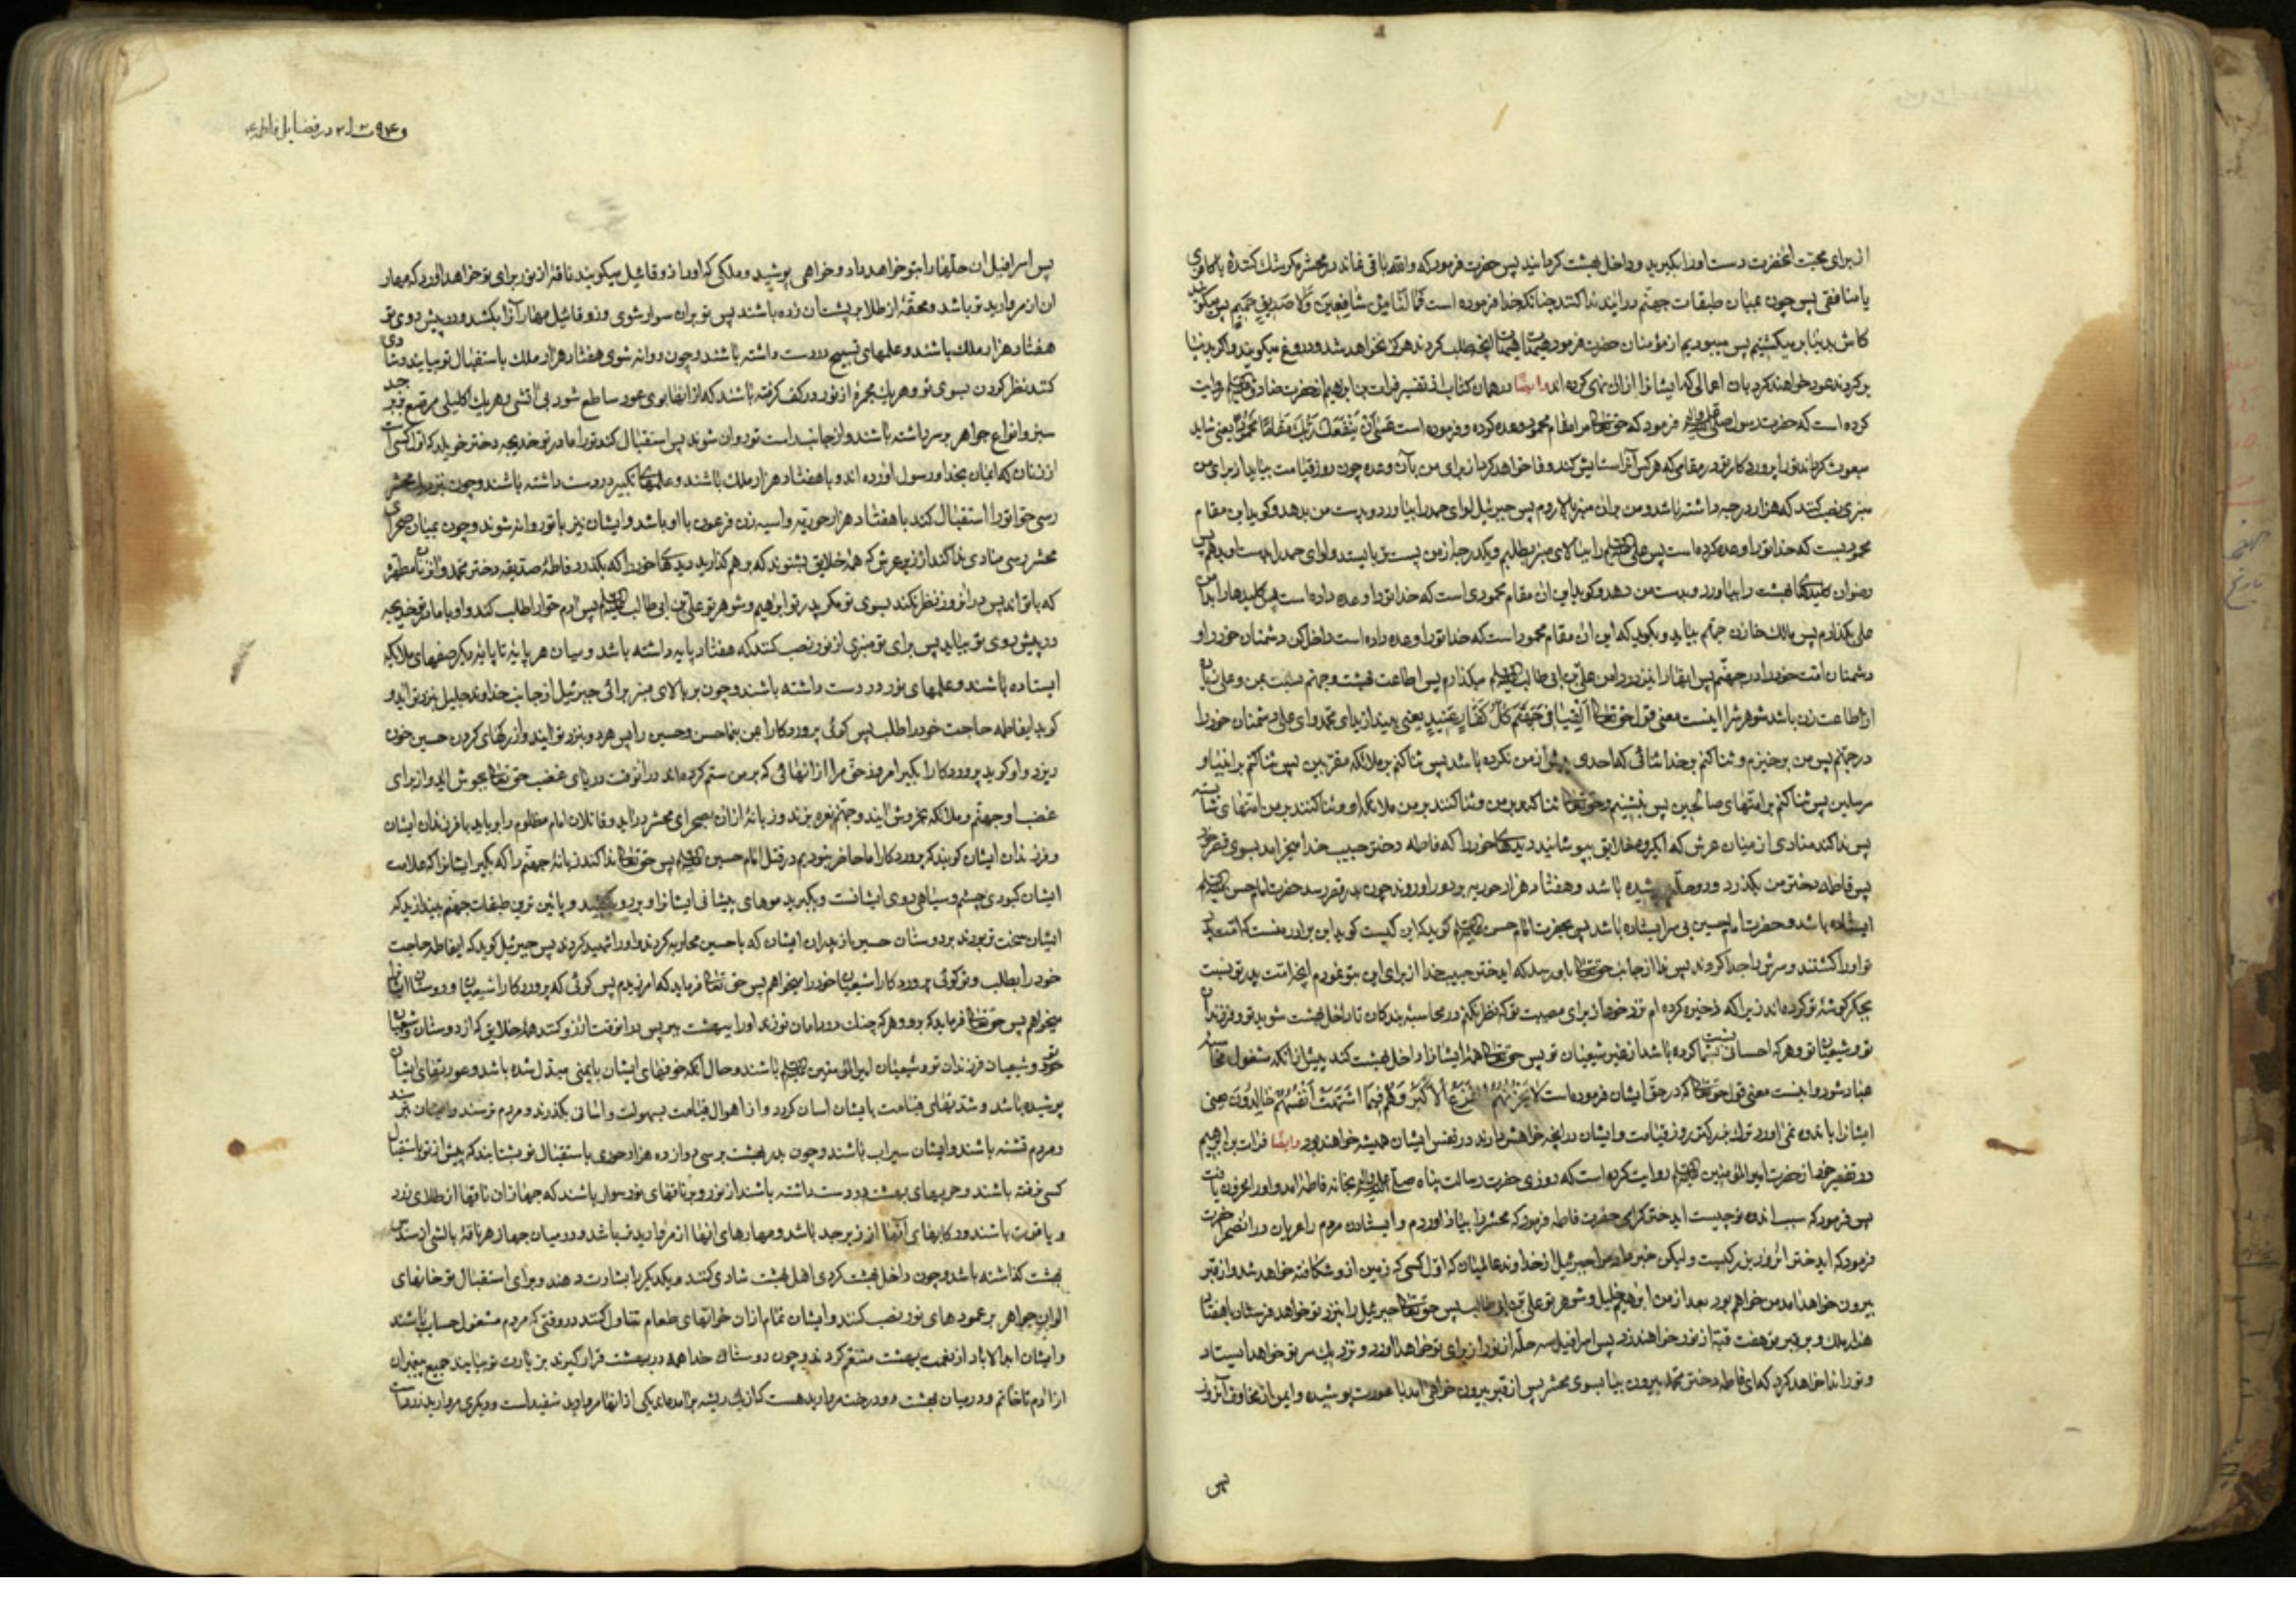 از برای محبت آنحضرت دست او را بگیرید و داخل بهشت گردانید پس حضرت فرمود که والله باقی نماند در محشر مگر شک کننده یا کافری
یا منافقی پس چون بمیان طبقات جهنم درآیند ندا کنند چنانکه خدا فرموده است فَمَا لَنَا مِنْ شَافِعِینَ وَلَا صَدِیقٍ حَمِیمٍ پس میگویند
کاش بدنیا بر میگشتیم پس میبودیم از مؤمنان حضرت فرمود هیهات هیهات آنچه طلب کردند هرگز نخواهد شد و دروغ میگویند و اگر بدنیا
بر گردند عود خواهند کرد بان اعمالی که ایشانرا از ان نهی کرده اند وایضا در همان کتاب از تفسیر فرات بن ابراهیم از حضرت صادق روایت
کرده است که حضرت رسول فرمود که حق تعالی مرا مقام محمود وعده کرده و فرموده است عَسَی أَنْ یَبْعَثَکَ رَبُّکَ مَقَامًا مَحْمُودًا یعنی شاید
مبعوث گرداند ترا پروردگار تو در مقامی که هر کس آنرا ستایش کند و وفا خواهد کرد از برای من بآن وعده چون روز قیامت بیاید از برای من
منبری نصب کنند که هزار درجه داشته باشد و من بران منبر بالا روم پس جبرئیل لوای حمد را بیاورد و بدست من بدهد و گوید این مقام
محمودیست که خدا تو را وعده کرده است پس علی را ببالای منبر بطلبم و یکدرجه از من پست تر بایستد و لوای حمد را بدست او بدهم پس
رضوان کلیدهای بهشت را بیاورد و بدست من دهد و گوید این ان مقام محمودی است که خدا تو را وعده داده است پس کلیدها را بدامن
علی بگذارم پس مالک خازن جهنم بیاید و بگوید که این ان مقام محمود است که خدا تو را وعده داده است داخل کن دشمنان خود را و
دشمنان امت خود را در جهنم پس انها را نیز در دامن علی بن ابی طالب میگذارم پس اطاعت بهشت و جهنم نسبت بمن و علی زیاده
از اطاعت زن باشد شوهرش را اینست معنی قول حق تعالی أَلْقِیَا فِی جَهَنَّمَ کُلَّ کَفَّارٍ عَنِیدٍ یعنی بیندازید ای محمد و ای علی دشمنان خود را
در جهنم پس من برخیزم و ثنا کنم بر خدا ثنائی که احدی پیش از من نکرده باشد پس ثنا کنم بر ملائکه مقربین پس ثنا کنم بر انبیا و
مرسلین پس ثنا کنم بر امتهای صالحین پس بنشینم و حق تعالی ثنا کند بر من و ثنا کنند بر من ملائکه او و ثنا کنند بر من امتهای شایسته
پس ندا کند منادی از میان عرش که ایگروه خلایق بپوشانید دیدهای خود را که فاطمه دختر حبیب خدا میخرامد بسوی قصر خود
پس فاطمه دختر من بگذرد و دو حله پوشیده باشد و هفتاد هزار حوریه بر دور او روند چون بدر قصر رسد حضرت امام حسن
ایستاده باشد و حضرت امام حسین بی سر ایستاده باشد پس بحضرت امام حسن گوید که این کیست گوید این برادر منست که امت پدر
تو او را کشتند و سرش را جدا کردند پس ندا از جانب حق تعالی باو رسد که ایدختر حبیب خدا از برای این بتو نمودم آنچه امت پدر تو نسبت
بجگر گوشهٔ تو کرده‌اند زیرا که ذخیره کرده ام نزد خود از برای مصیبت تو که نظر نکنم در محاسبهٔ بندگان تا داخل بهشت شوید تو و فرزندان
تو و شیعیان تو و هر که احسانی بشما کرده باشد از غیر شیعیان تو پس حق تعالی همهٔ ایشانرا داخل بهشت کند پیش از انکه مشغول محاسبه
عباد شود و اینست معنی قول حق تعالی که در حق ایشان فرموده است لَا یَحْزُنُهُمُ الْفَزَعُ الْأَکْبَرُ وَهُمْ فِیمَا اشْتَهَتْ أَنْفُسُهُمْ خَالِدُونَ یعنی
ایشانرا باندوه نمی اورد ترس بزرگتر روز قیامت و ایشان در انچه خواهش دارند در نفس ایشان همیشه خواهند بود وایضا فرات بن ابراهیم
در تفسیر خود از حضرت امیر المؤمنین روایت کرده است که روزی حضرت رسالت پناه بخانه فاطمه آمد و او را محزون یافت
پس فرمود که سبب اندوه تو چیست ایدختر گرامی حضرت فاطمه فرمود که محشر را بیاد اوردم و ایستادن مردم را عریان در انصحرا حضرت
فرمود که ایدختر انروز بزرگیست ولیکن خبر داد مرا جبرئیل از خداوند عالمیان که اول کسی که زمین از و شکافته خواهد شد و از قبر
بیرون خواهد امد من خواهم بود بعد از من ابراهیم خلیل و شوهر تو علی بن ابی طالب پس حق تعالی جبرئیل را بنزد تو خواهد فرستاد با هفتاد
هزار ملک و بر قبر تو هفت قبه از نور خواهند زد پس اسرافیل سه حله از نور از برای تو خواهد اورد و نزدیک سر تو خواهد ایستاد
و تو را ندا خواهد کرد که ای فاطمه دختر محمد بیرون بیا بسوی محشر پس از قبر بیرون خواهی امد با عورت پوشیده و ایمن از مخاوف آنروز
پس
در فضایل فاطمه ع
پس اسرافیل ان حلها را بتو خواهد داد و خواهی پوشید و ملکی که او را زوقائیل میگویند ناقهٔ از نور برای تو خواهد اورد که مهار
ان از مروارید تر باشد و محفهٔ از طلا بر پشت ان زده باشند پس تو بران سوار شوی و زوقائیل مهار آنرا بکشد و در پیش روی تو
هفتاد هزار ملک باشند و علمهای تسبیح در دست داشته باشند و چون روانه شوی هفتاد هزار ملک باستقبال تو بیایند و شادی
کنند نظر کردن بسوی تو و هر یک مجمرهٔ از نور در کف گرفته باشند که از انها بوی عود ساطع شود بی اتشی و هر یک اکلیلی مرصع بزبرجد
سبز و انواع جواهر بر سر داشته باشند و از جانب راست تو روان شوند پس استقبال کند تو را مادر تو خدیجه دختر خویلد که اول کسی است
از زنان که ایمان بخدا و رسول اورده اند و با هفتاد هزار ملک باشند و علمهای تکبیر در دست داشته باشند و چون بنزدیک محشر
رسی حوا تو را استقبال کند با هفتاد هزار حوریه و اسیه زن فرعون با او باشد و ایشان نیز با تو روانه شوند و چون بمیان صحرای
محشر رسی منادی ندا کند از زیر عرش که همهٔ خلایق بشنوند که بر هم گذارید دیدهای خود را که بگذرد فاطمهٔ صدیقه دختر محمد و ان زنان مطهر
که با تو اند پس در انروز نظر نکند بسوی تو مگر پدر تو ابراهیم و شوهر تو علی بن ابی طالب پس ادم حوا را طلب کند و او با مادر تو خدیجه
در پیش روی تو بیاید پس برای تو منبری از نور نصب کنند که هفتاد پایه داشته باشد و میان هر پایهٔ تا پایهٔ دیگر صفهای ملائکه
ایستاده باشند و علمهای نور در دست داشته باشند و چون بر بالای منبر برائی جبرئیل از جانب خداوند جلیل بنزد تو آید و
گوید ایفاطمه حاجت خود را طلب پس گوئی پروردگارا بمن بنما حسن و حسین را پس هر دو بنزد تو ایند و از رگهای گردن حسین خون
ریزد و او گوید پروردگارا بگیر امروز حق مرا از انهائی که بر من ستم کرده اند در انوقت دریای غضب حق تعالی بجوش اید و از برای
غضب او جهنم و ملائکه بخروش ایند و جهنم نعره بزند و زبانهٔ از ان بصحرای محشر دراید و قاتلان امام مظلوم را برباید با فرزندان ایشان
و فرزندان ایشان گویند که پروردگارا ما حاضر نبودیم در قتل امام حسین پس حق تعالی ندا کند زبانهٔ جهنم را که بگیر ایشانرا که علامت
ایشان کبودی چشم و سیاهی روی ایشانست و بگیرید موهای پیشانی ایشانرا و بر رو بکشید و پائین ترین طبقات جهنم بیندازید که
ایشان سخت تر بودند بر دوستان حسین از پدران ایشان که با حسین محاربه کردند و او را شهید کردند پس جبرئیل گوید که ایفاطمه حاجت
خود را بطلب و تو گوئی پروردگارا شیعیان خود را میخواهم پس حق تعالی فرماید که امرزیدم پس گوئی که پروردگارا شیعیان و دوستان ایشانرا
میخواهم پس حق تعالی فرماید که برو و هر که چنگ در دامان تو زند او را ببهشت ببر پس در انوقت ارزو کنند همهٔ خلایق که از دوستان و شیعیان
تو و شیعیان فرزندان تو و شیعیان امیر المؤمنین باشند و حال انکه خوفهای ایشان بایمنی مبدل شده باشد و عورتهای ایشان
پوشیده باشد و شدتهای قیامت بایشان اسان گردد و از اهوال قیامت بسهولت و اسانی بگذرند و مردم ترسند و ایشان نترسند
و مردم تشنه باشند و ایشان سیراب باشند و چون بدر بهشت برسی دوازده هزار حوری باستقبال تو بشتابند که پیش از تو باستقبال
کسی نرفته باشند و حربهای بهشت در دست داشته باشند از نور و بر ناقهای نور سوار باشند که جهازان ناقها از طلای زرد
و یاقوت باشند و رکابهای آنها از زبرجد باشد و مهارهای انها از مروارید تر باشد و در میان جهاز هر ناقهٔ بالشی از سندس
بهشت گذاشته باشد و چون داخل بهشت گردی اهل بهشت شادی کنند و یکدیگر را بشارت دهند و برای استقبال تو خانهای
الوان جواهر بر عمودهای نور نصب کنند و ایشان تمام از ان خوانهای طعام تناول کنند در وقتی که مردم مشغول حساب باشند
و ایشان ابد الاباد از نعمت بهشت متنعم گردند و چون دوستان خدا همه در بهشت قرار گیرند بزیارت تو بیایند جمیع پیغمبران
از ادم تا خاتم و در میان بهشت دو درخت مروارید هست که از یک ریشه برامده‌اند یکی از انها مروارید سفید است و دیگری مروارید زرد